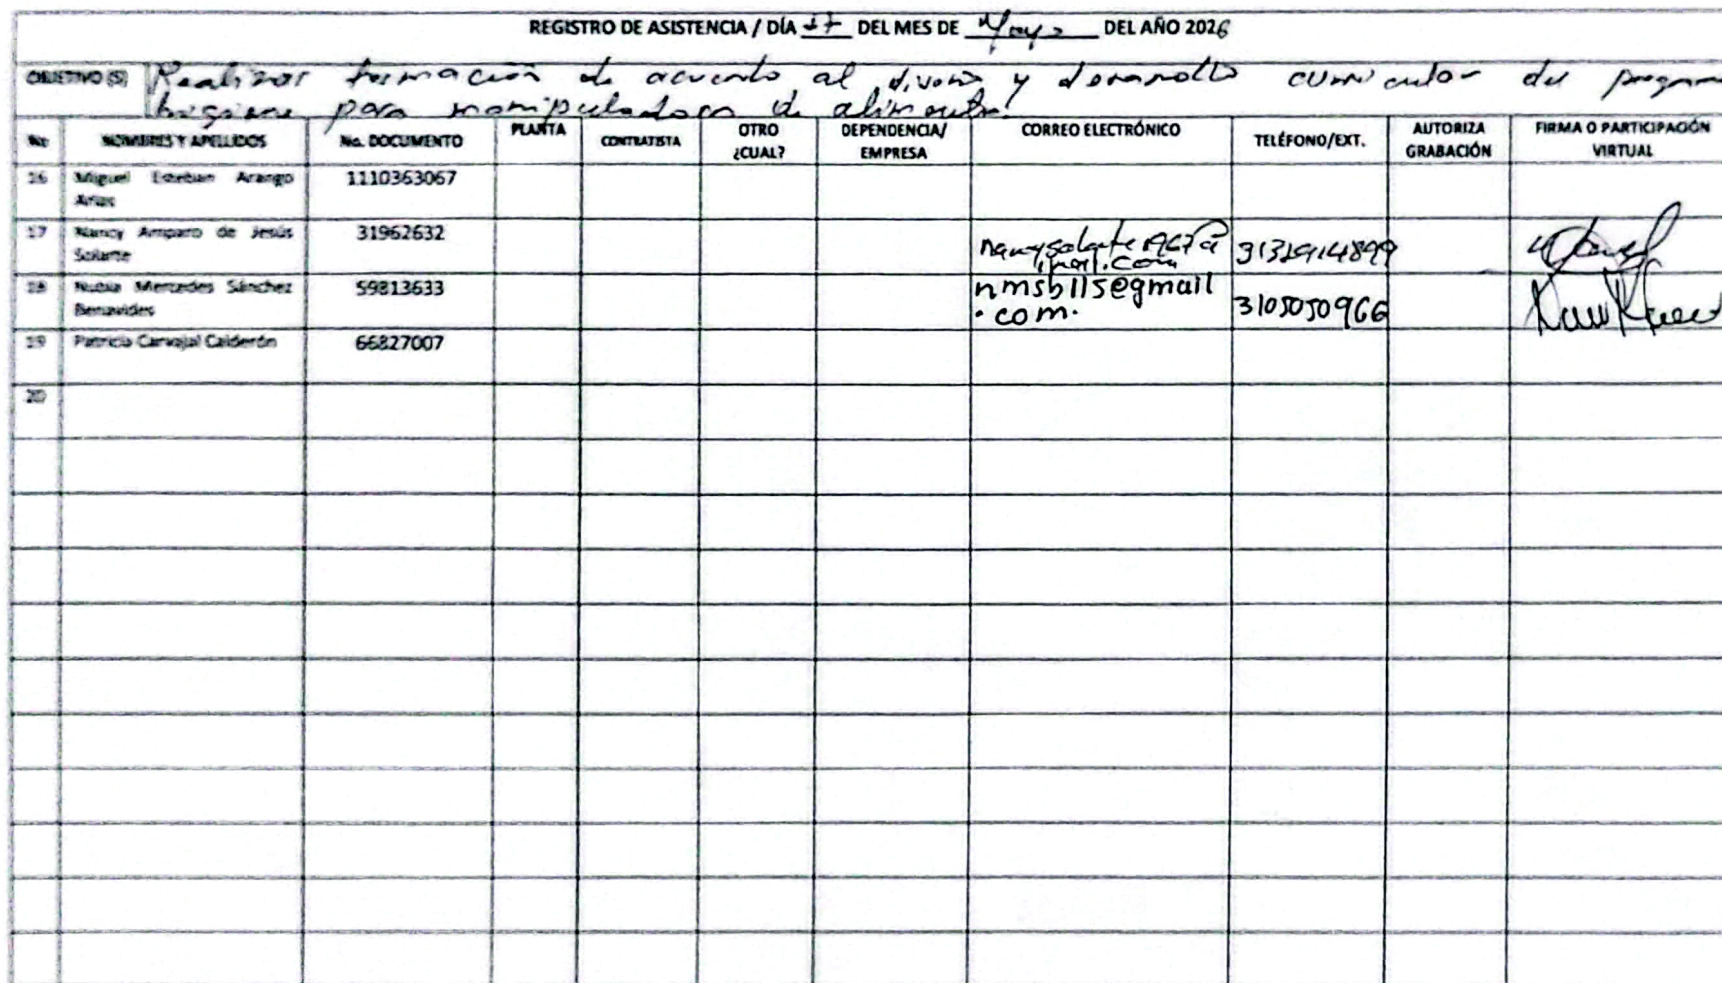 REGISTRO DE ASISTENCIA / DÍA 27 DEL MES DE Mayo DEL AÑO 2026
OBJETIVO (S) Realizar formación de acuerdo al diseño y desarrollo curricular del programa
higiene para manipuladores de alimentos.
No NOMBRES Y APELLIDOS No. DOCUMENTO PLANTA CONTRATISTA OTRO ¿CUAL? DEPENDENCIA/ EMPRESA CORREO ELECTRÓNICO TELÉFONO/EXT. AUTORIZA GRABACIÓN FIRMA O PARTICIPACIÓN VIRTUAL
16 Miguel Esteban Arango 1110363067
Arias
17 Nancy Amparo de Jesús 31962632
Solarte
18 Nubia Mercedes Sánchez 59813633 nmsb115@gmail
Benavides .com. 3105050966
19 Patricia Carvajal Calderón 66827007
20